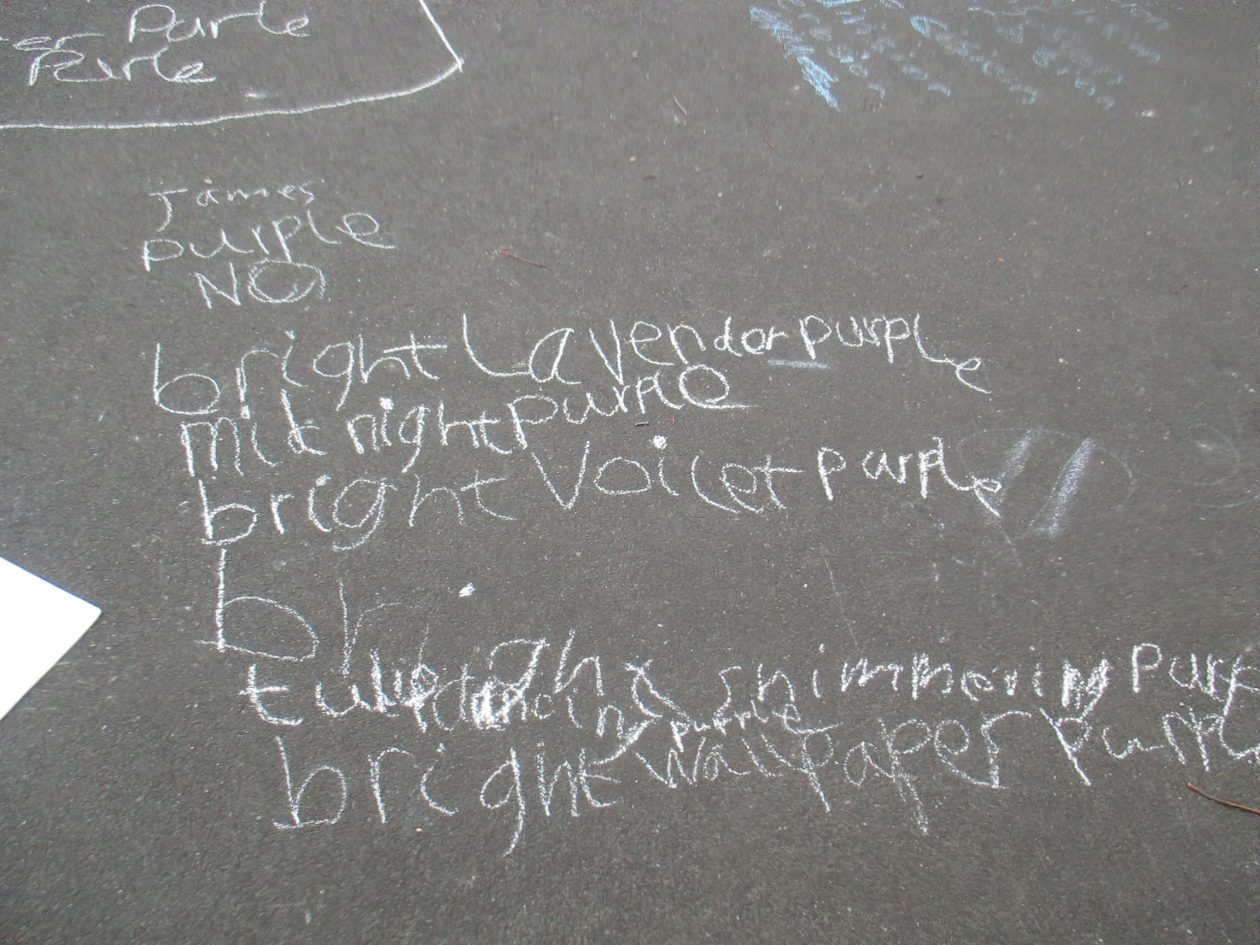 Purle
Purle
James
purple
NO
bright Lavender purple
mit night purple
bright Voilet purple
bright shimmering purp
purple
bright wallpaper purple